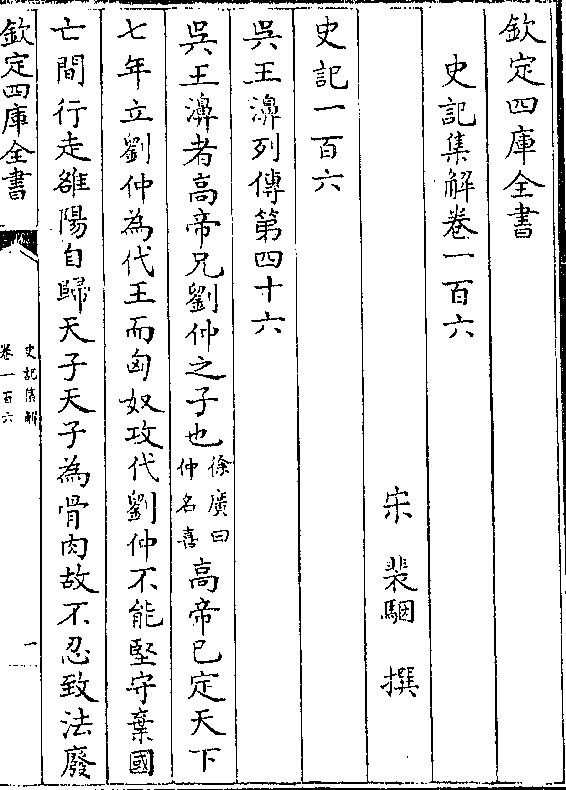 欽定四庫全書
史記集解卷一百六
宋 裴駰 撰
史記一百六
吳王濞列傳第四十六
吳王濞者高帝兄劉仲之子也徐廣曰仲名喜高帝已定天下
七年立劉仲為代王而匈奴攻代劉仲不能堅守棄國
亡間行走雒陽自歸天子天子為骨肉故不忍致法廢
欽定四庫全書
史記集解
卷一百六
一